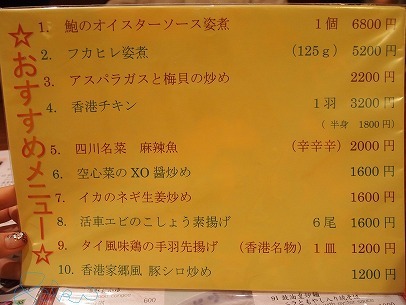 ☆おすすめメニュー☆
1. 鮑のオイスターソース姿煮 1個 6800円
2. フカヒレ姿煮 (125g) 5200円
3. アスパラガスと梅貝の炒め 2200円
4. 香港チキン 1羽 3200円
(半身 1800円)
5. 四川名菜 麻辣魚 (辛辛辛) 2000円
6. 空心菜のXO醤炒め 1600円
7. イカのネギ生姜炒め 1600円
8. 活車エビのこしょう素揚げ 6尾 1600円
9. タイ風味鶏の手羽先揚げ (香港名物) 1皿 1200円
10. 香港家郷風 豚シロ炒め 1200円